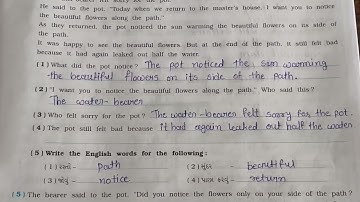 He said to the pot, "Today when we return to the master's house, I want you to notice
the beautiful flowers along the path."
As they returned, the pot noticed the sun warming the beautiful flowers on its side of
the path.
It was happy to see the beautiful flowers. But at the end of the path, it still felt bad
because it had again leaked out half the water.
(1) What did the pot notice? The pot noticed the sun warming
the beautiful flowers on its side of the path.
(2) "I want you to notice the beautiful flowers along the path." Who said this?
The water-bearer
(3) Who felt sorry for the pot? The water-bearer felt sorry for the pot.
(4) The pot still felt bad because It had again leaked out half the water
(5) Write the English words for the following :
(1) રસ્તો - path (2) સુંદર - beautiful
(3) જોવું - notice (4) પાછા ફરવું - return
(5) The bearer said to the pot, "Did you notice the flowers only on your side of the path?